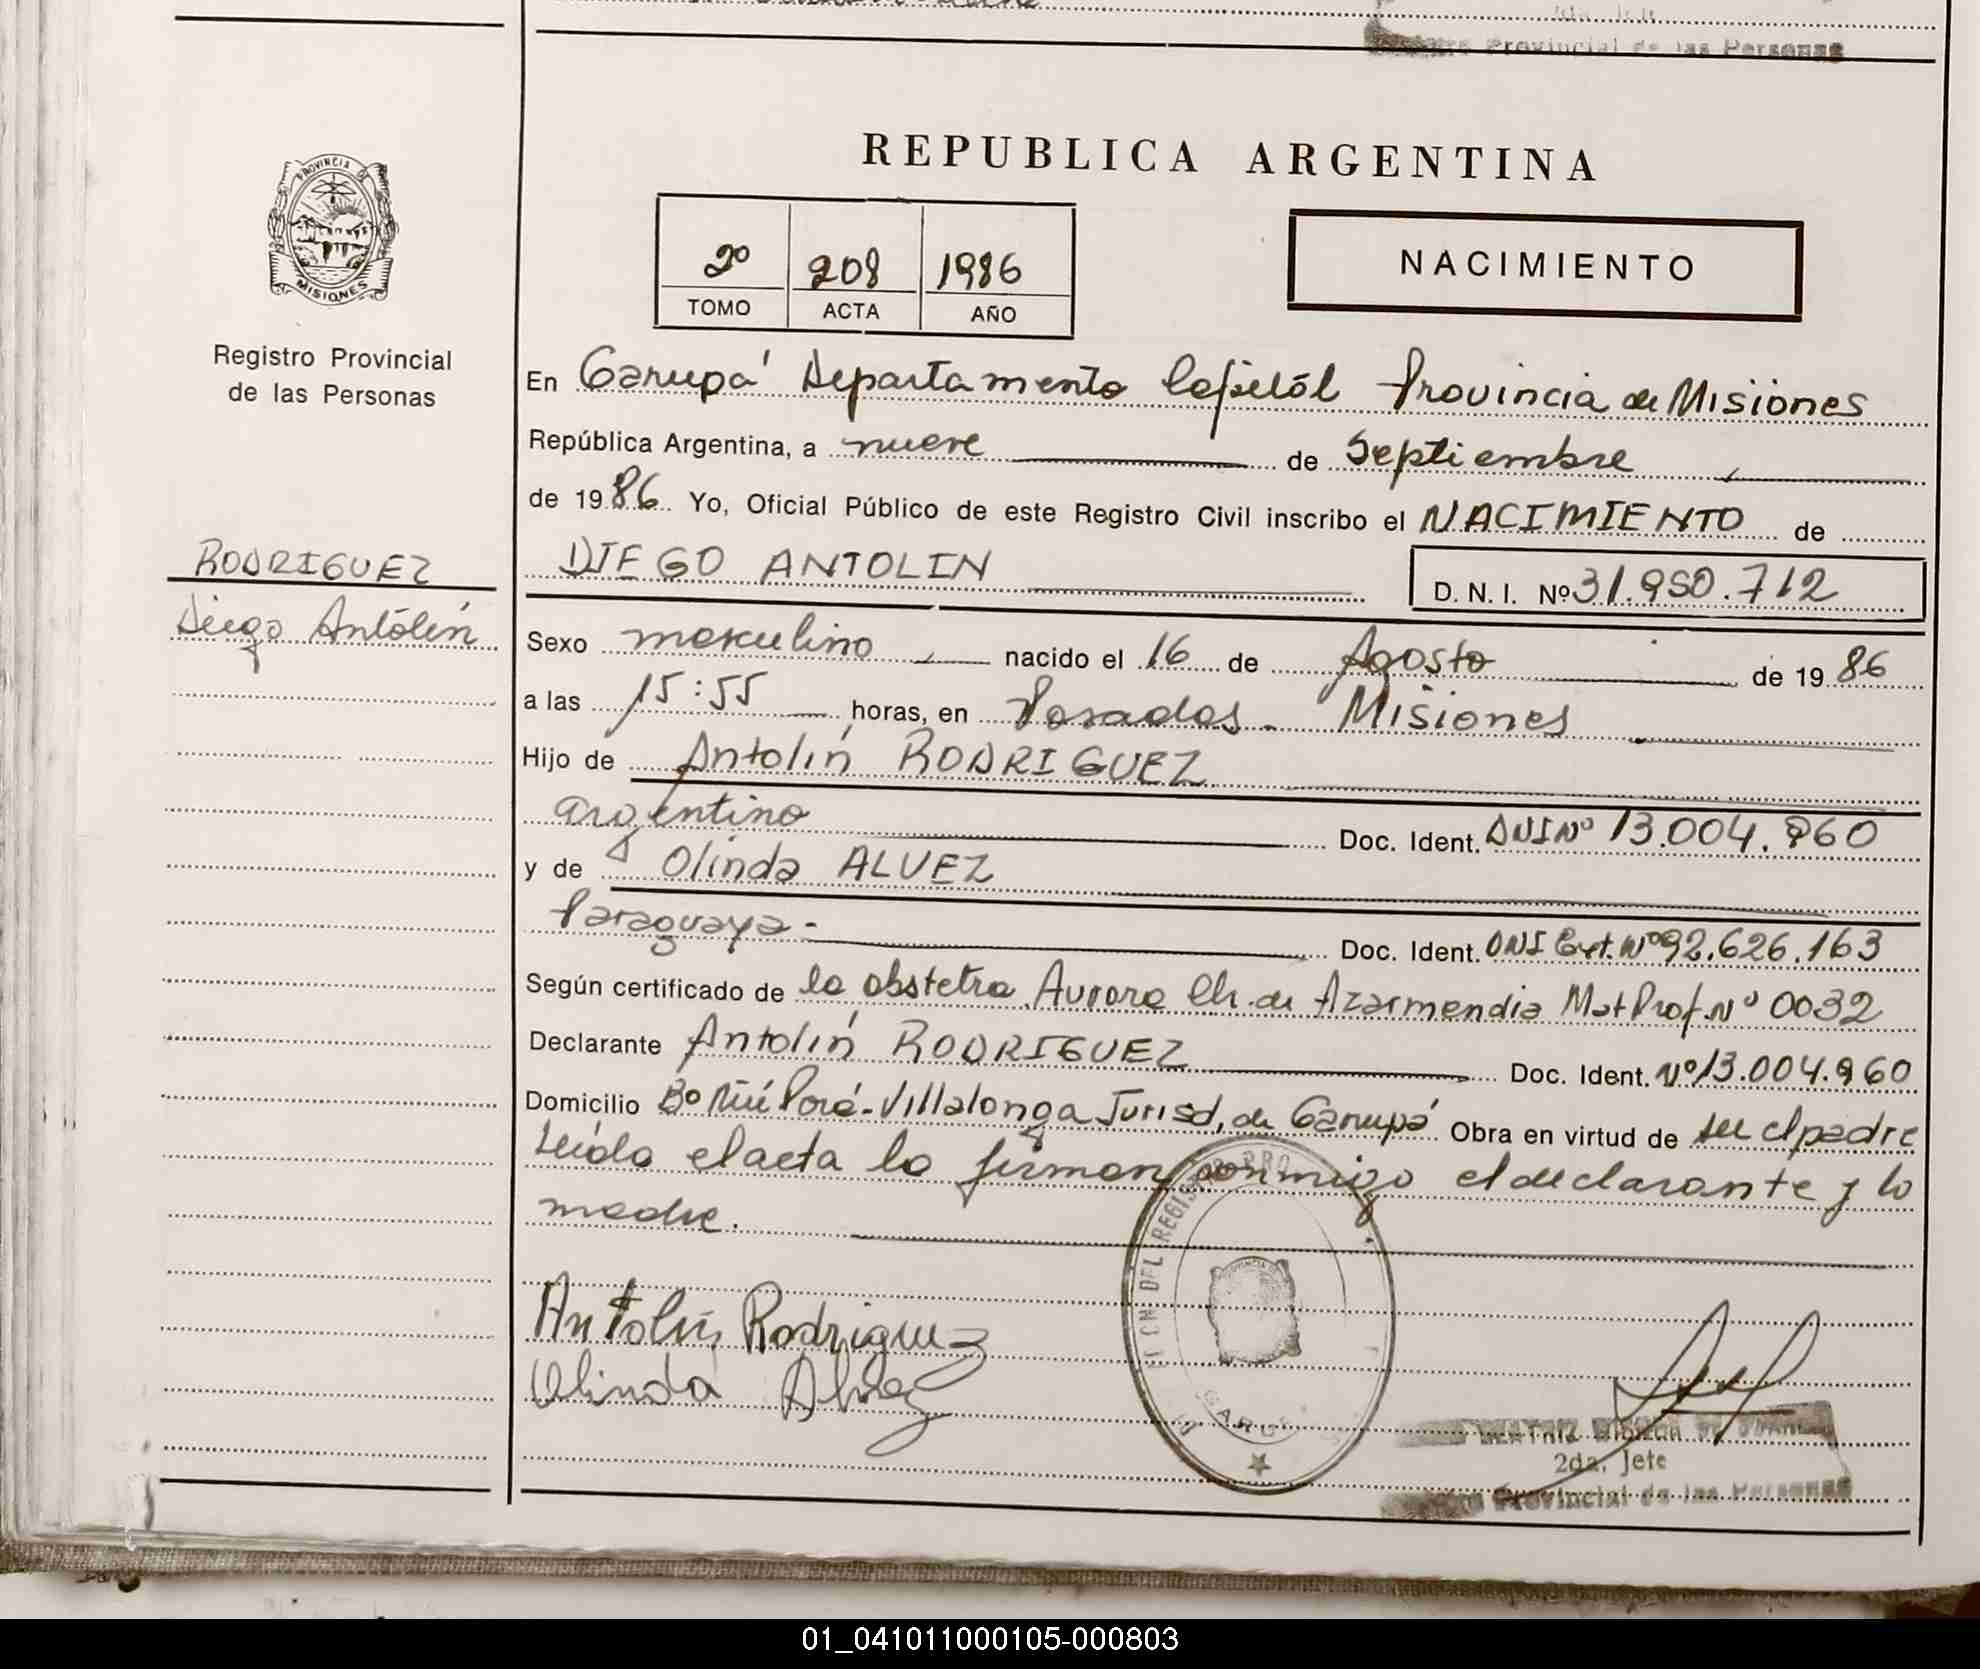 Registro Provincial de las Personas
REPUBLICA ARGENTINA
PROVINCIA DE
MISIONES
2º 208 1986
TOMO ACTA AÑO
NACIMIENTO
Registro Provincial
de las Personas
En Garupá Departamento Capitál Provincia de Misiones
República Argentina, a nueve de Septiembre
de 1986. Yo, Oficial Público de este Registro Civil inscribo el NACIMIENTO de
RODRIGUEZ
DIEGO ANTOLIN
D. N. I. Nº 31.950.712
Diego Antolín
Sexo masculino nacido el 16 de Agosto de 1986
a las 15:55 horas, en Posadas - Misiones
Hijo de Antolín RODRIGUEZ
argentino Doc. Ident. DNI Nº 13.004.960
y de Olinda ALVEZ
Paraguaya.- Doc. Ident. DNI Ext. Nº 92.626.163
Según certificado de la obstetra Aurora Ch. de Azarmendia Mat Prof. Nº 0032
Declarante Antolín RODRIGUEZ Doc. Ident. Nº 13.004.960
Domicilio Bº Ñú Porá-Villalonga Jurisd, de Garupá Obra en virtud de ser el padre
Leída el acta la firman conmigo el declarante y la
madre.
Antolín Rodriguez
Olinda Alvez
2da. Jefe
Provincial de las Personas
01_041011000105-000803